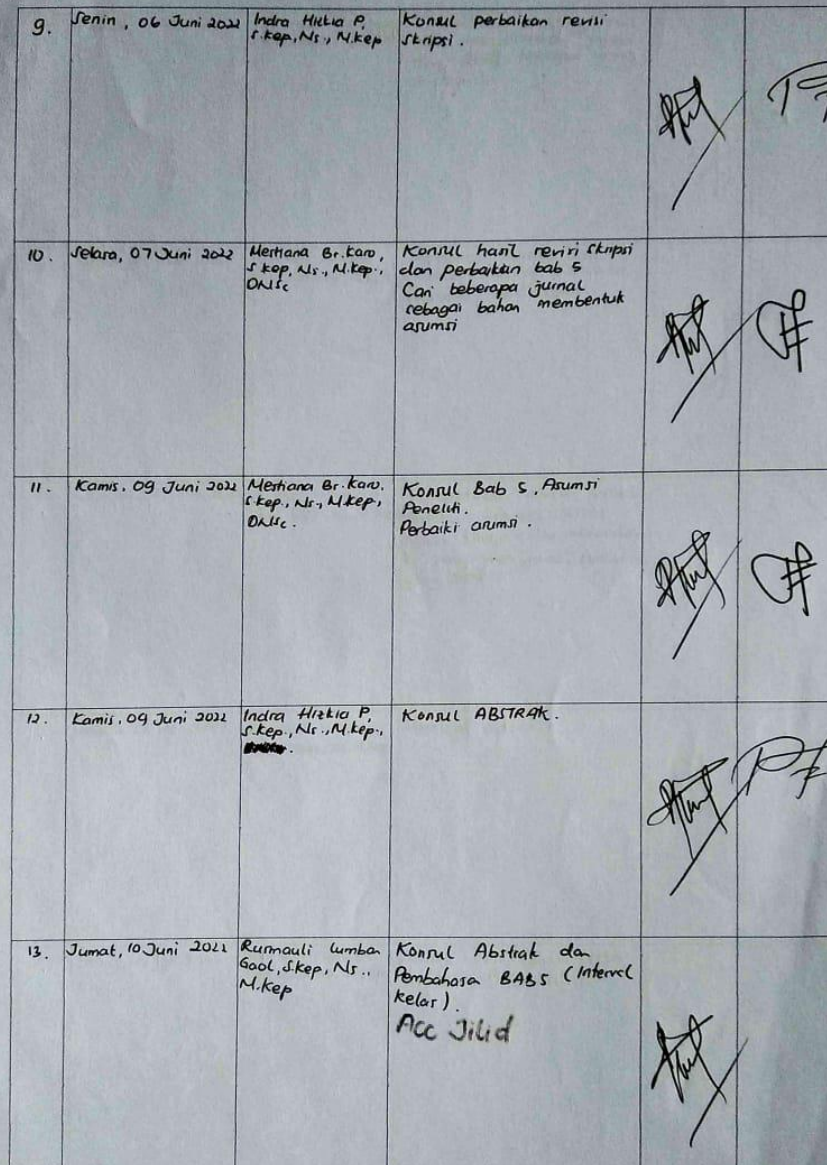 9.
Senin, 06 Juni 2022
Indra Hizkia P,
S.kep, Ns., M.kep
Konsul perbaikan revisi
skripsi.
10.
Selasa, 07 Juni 2022
Mestiana Br. Karo,
S.kep, Ns., M.kep.,
DNSc
Konsul hasil revisi skripsi
dan perbaikan bab 5
Cari beberapa jurnal
sebagai bahan membentuk
asumsi
11.
Kamis, 09 Juni 2022
Mestiana Br. Karo,
S.kep., Ns., M.kep,
DNSc.
Konsul Bab 5, Asumsi
Peneliti.
Perbaiki asumsi.
12.
Kamis, 09 Juni 2022
Indra Hizkia P,
S.kep., Ns., M.kep.,
Konsul ABSTRAK.
13.
Jumat, 10 Juni 2022
Rusmauli Lumban
Gaol, S.kep, Ns.,
M.kep
Konsul Abstrak dan
Pembahasa BAB 5 (Interval
kelas).
Acc Jilid